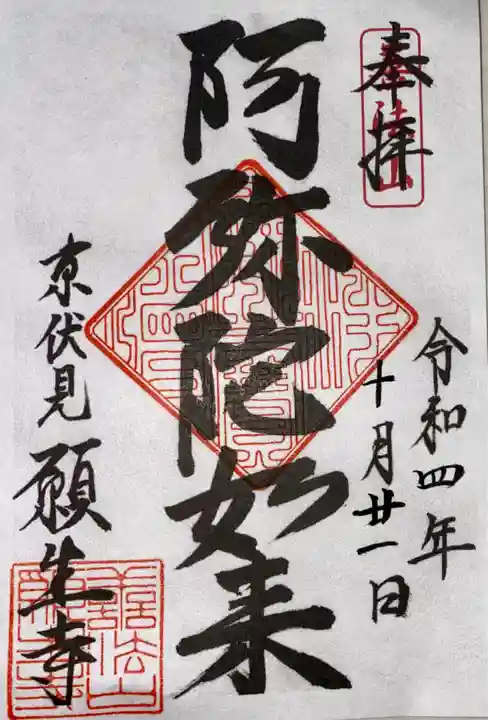 奉拝
令和四年
十月廿一日
阿弥陀如来
京伏見 願生寺